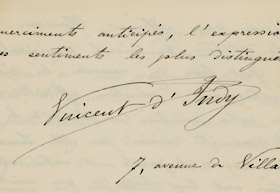 merciments anticipés, l'expression
es sentiments les plus distingué
Vincent d'Indy
7, avenue de Villa